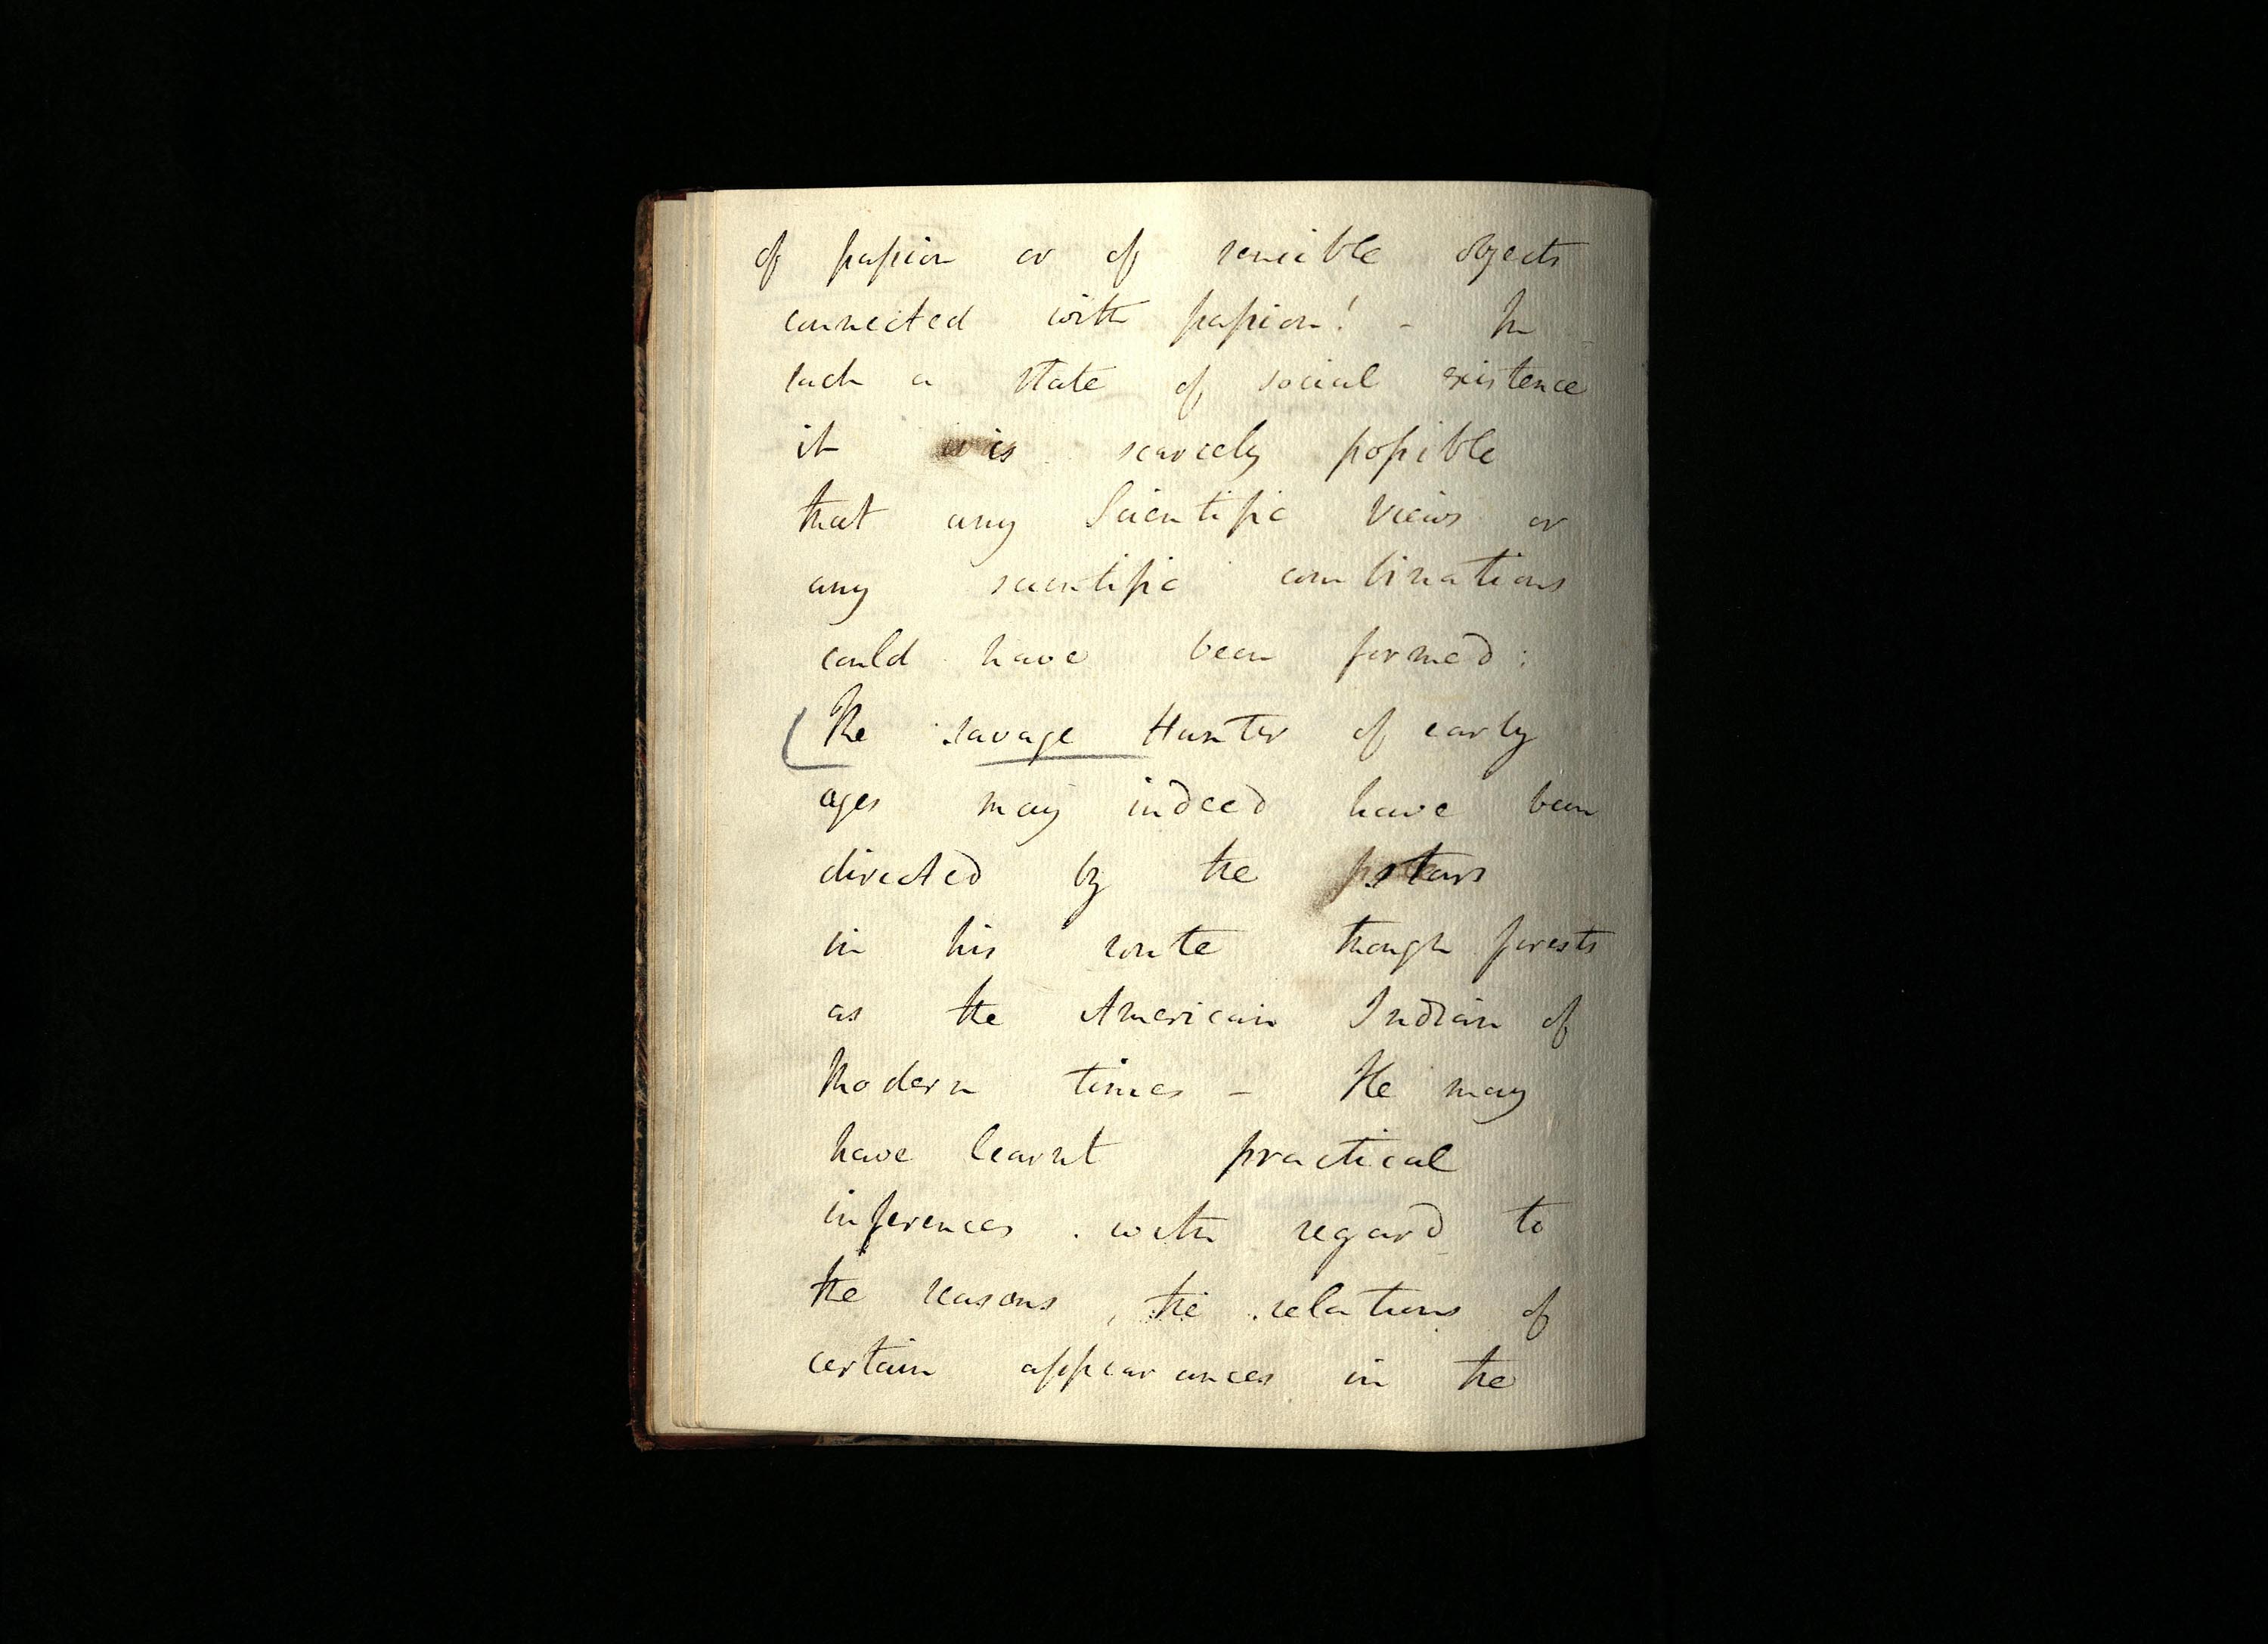 of passion or of sensible objects
connected with passion! - In
such a state of social existence
it is scarcely possible
that any Scientific views or
any scientific combinations
could have been formed:
(The savage Hunter of early
ages may indeed have been
directed by the stars
in his route though forests
as the American Indian of
Modern times - He may
have learnt practical
inferences with regard to
the seasons, the relations of
certain appearances in the